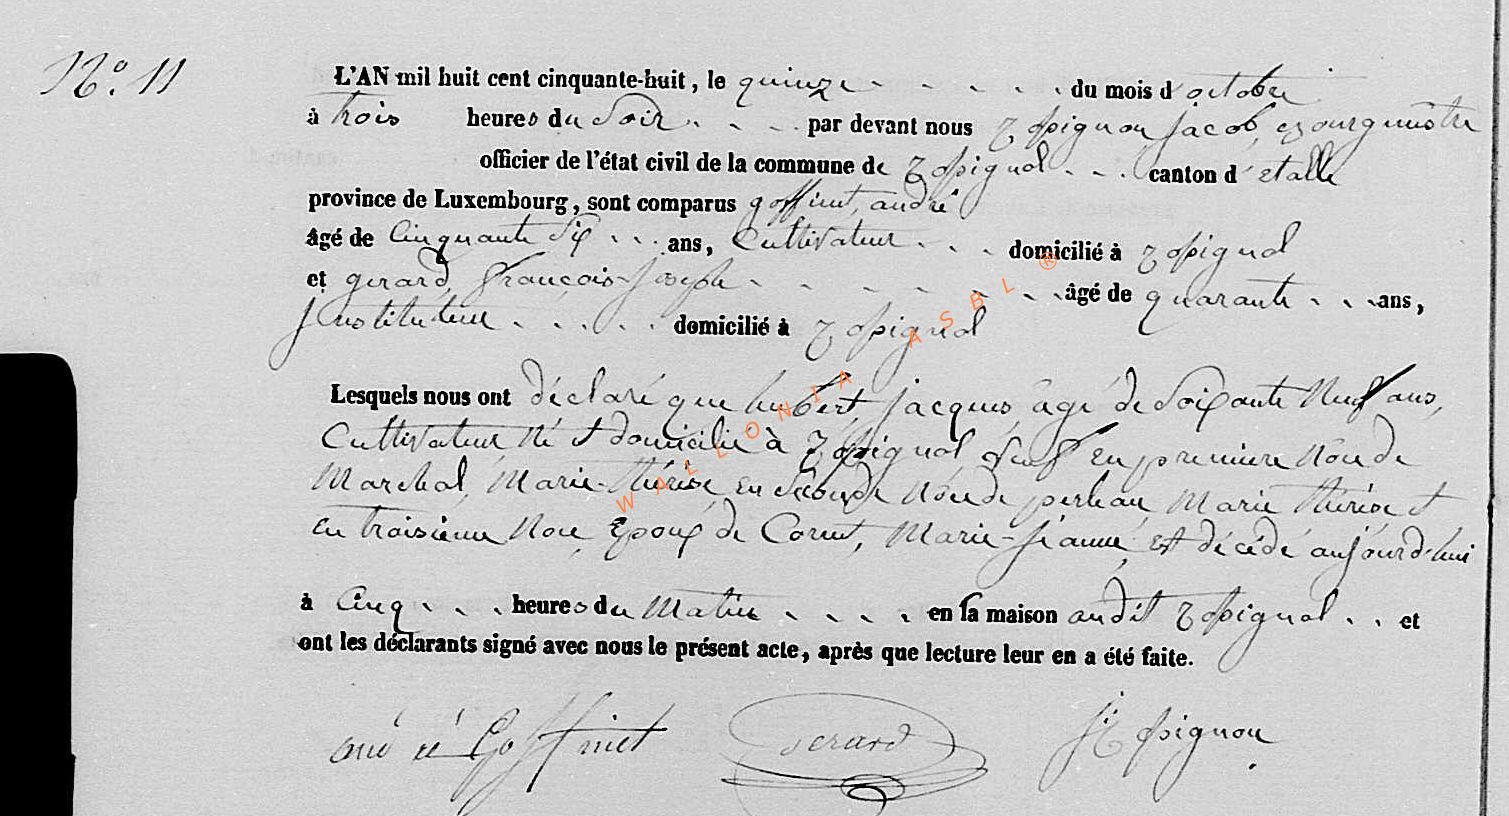 N.º 11
L'AN mil huit cent cinquante-huit, le quinze - - - - - du mois d'octobre
à trois heures du Soir - - - par devant nous Jacob, Bourgmestre
officier de l'état civil de la commune de - - - canton d'etalle
province de Luxembourg, sont comparus goffinet, andré
âgé de Cinquante Six - - - ans, Cultivateur - - - domicilié à
et gerard, françois-joseph - - - - - - - - âgé de quarante - - - ans,
Instituteur - - - - - domicilié à
Lesquels nous ont déclaré que hubert, jacques, âgé de Soixante Neuf ans,
Cultivateur, Né et domicilié à veuf en premiere Nôce de
Marchal, Marie-thérèse, en Seconde Nôce de Marie thérèse et
en troisième Noce, Epoux de Cornet, Marie-jeanne, est décédé aujourd'hui
à Cinq - - - heures du Matin - - - - en sa maison audit - - et
ont les déclarants signé avec nous le présent acte, après que lecture leur en a été faite.
andré Goffinet Gerard
WALLONIA ASBL ®